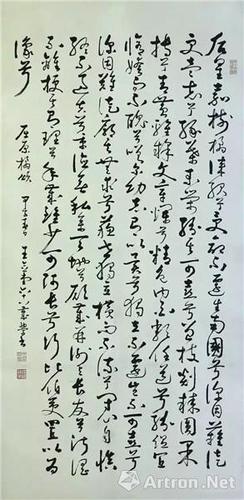 后皇嘉樹橘徠服兮受命不遷生南國兮深固難徙
更壹志兮綠葉素榮紛其可喜兮曾枝剡棘圓果
摶兮青黃雜糅文章爛兮精色內白類任道兮紛縕宜
脩姱而不醜兮嗟爾幼志有以異兮獨立不遷豈不可喜兮
深固難徙廓其無求兮蘇世獨立橫而不流兮閉心自慎
終不失過兮秉德無私參天地兮願歲并謝與長友兮淑
離不淫梗其有理兮年歲雖少可師長兮行比伯夷置以為
像兮
屈原橘頌 甲午春 王 六十八歲
雅昌艺术网
Artron.Net